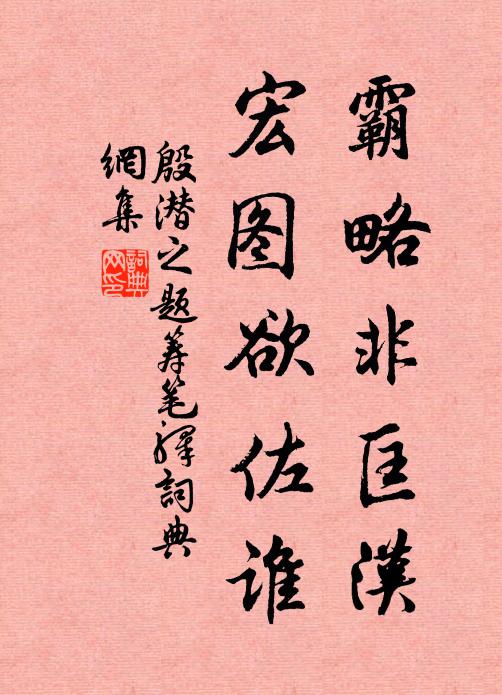 霸略非匡漢
宏图欲佐谁
殷潜之题筹笔驛詞典
網集
詞典网印